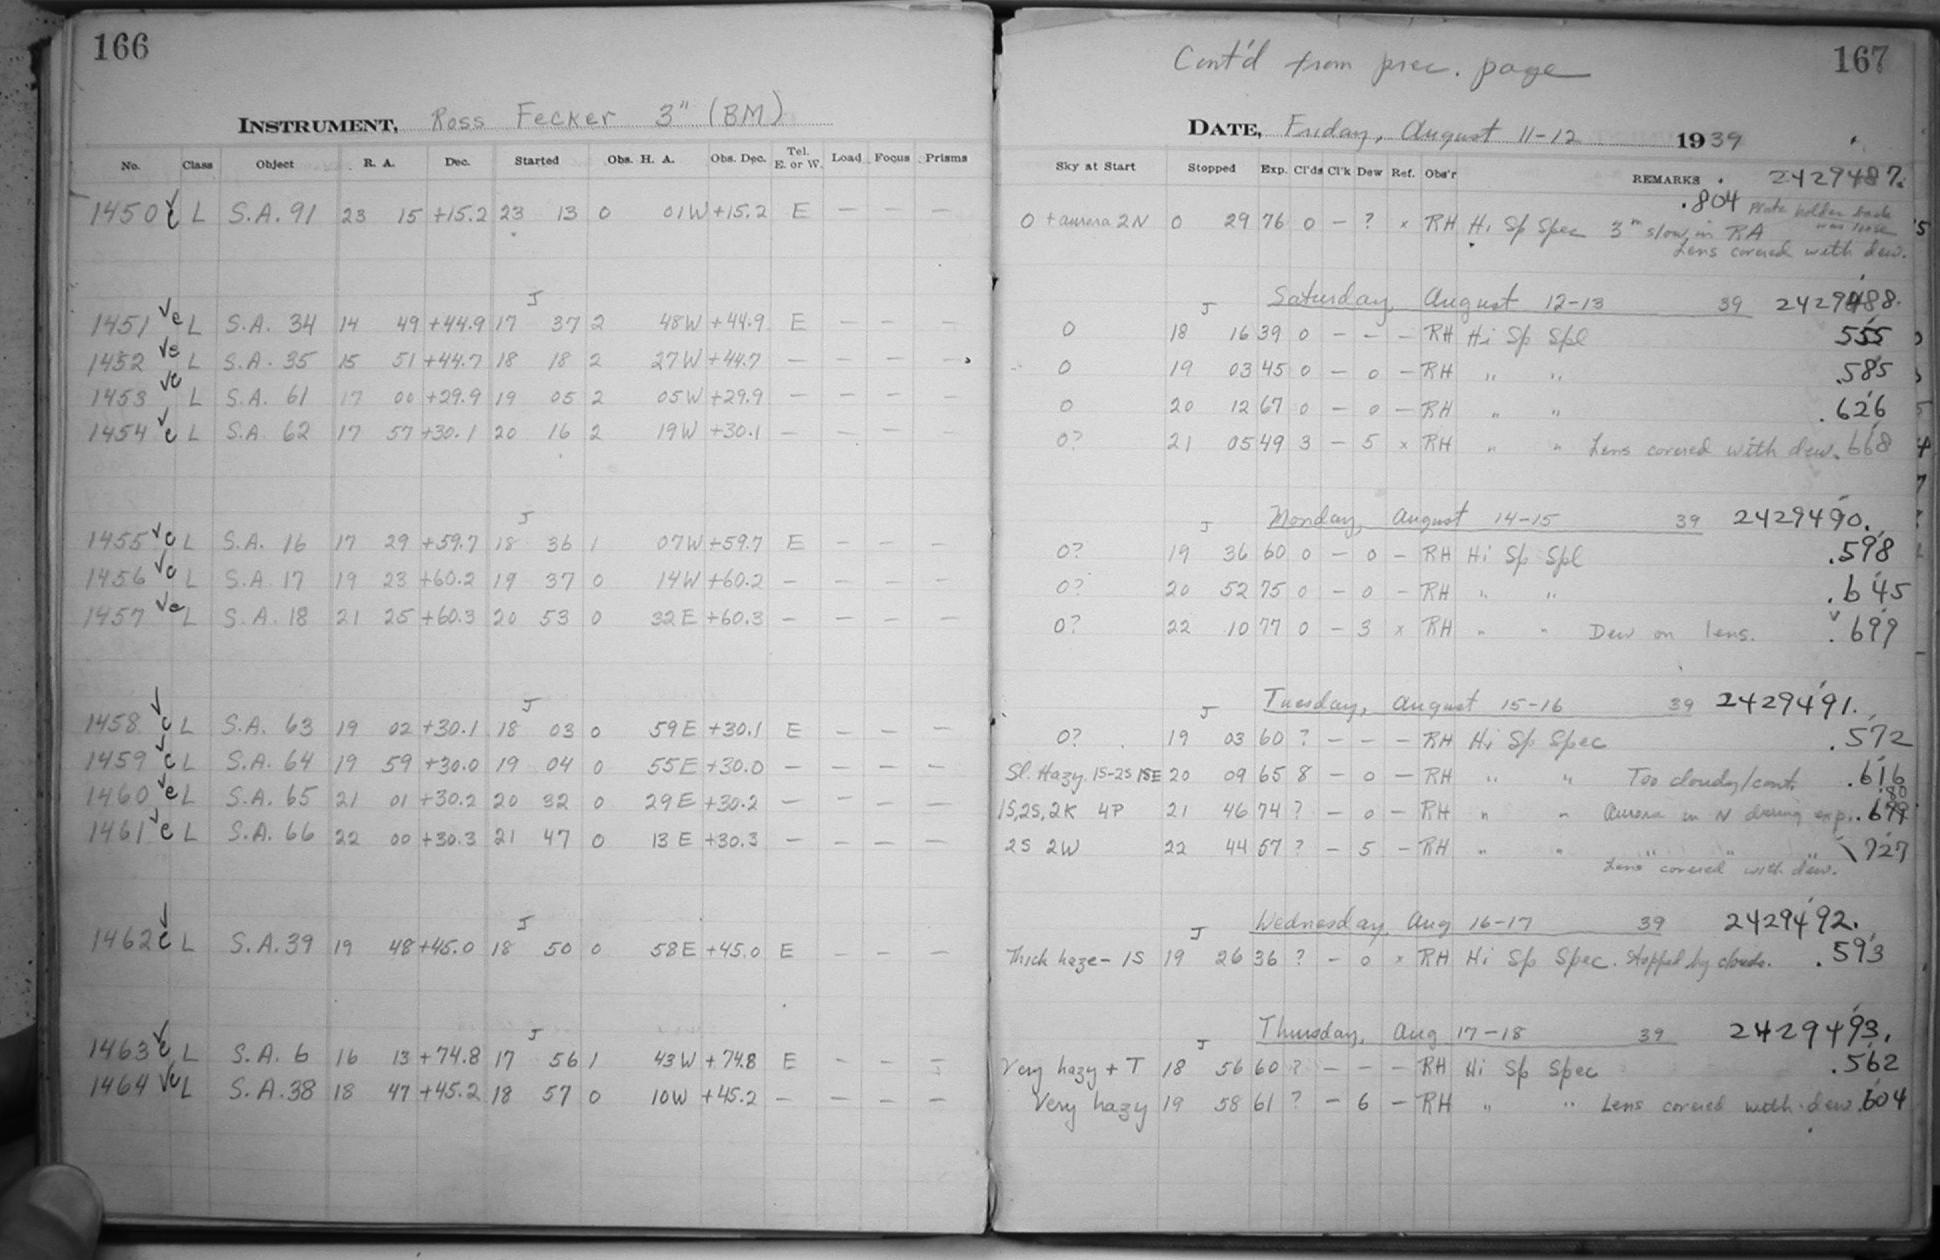 166
INSTRUMENT, Ross Fecker 3" (BM)
No. Class Object R. A. Dec. Started Obs. H. A. Obs. Dec. Tel. E. or W. Load Focus Prisms
1450 c L S.A. 91 23 15 +15.2 23 13 0 01W +15.2 E — — —
J
1451 c L S.A. 34 14 49 +44.9 17 37 2 48W +44.9 E — — —
1452 c L S.A. 35 15 51 +44.7 18 18 2 27W +44.7 — — — —
1453 c L S.A. 61 17 00 +29.9 19 05 2 05W +29.9 — — — —
1454 c L S.A. 62 17 57 +30.1 20 16 2 19W +30.1 — — — —
J
1455 c L S.A. 16 17 29 +59.7 18 36 1 07W +59.7 E — — —
1456 c L S.A. 17 19 23 +60.2 19 37 0 14W +60.2 — — — —
1457 c L S.A. 18 21 25 +60.3 20 53 0 32E +60.3 — — — —
J
1458 c L S.A. 63 19 02 +30.1 18 03 0 59E +30.1 E — — —
1459 c L S.A. 64 19 59 +30.0 19 04 0 55E +30.0 — — — —
1460 c L S.A. 65 21 01 +30.2 20 32 0 29E +30.2 — — — —
1461 c L S.A. 66 22 00 +30.3 21 47 0 13E +30.3 — — — —
J
1462 c L S.A. 39 19 48 +45.0 18 50 0 58E +45.0 E — — —
J
1463 c L S.A. 6 16 13 +74.8 17 56 1 43W +74.8 E — — —
1464 c L S.A. 38 18 47 +45.2 18 57 0 10W +45.2 — — — —
Cont'd from prec. page 167
DATE, Friday, August 11-12 1939
Sky at Start Stopped Exp. Cl'ds Cl'k Dew Ref. Obs'r REMARKS 2429487.
.804 Plate holder back was loose
0 + aurora 2N 0 29 76 0 — ? x RH Hi Sp Spec 3m slow in RA
Lens covered with dew.
J Saturday, August 12-13 39 2429488.
0 18 16 39 0 — — — RH Hi Sp Spl 555
0 19 03 45 0 — 0 — RH " " .585
0 20 12 67 0 — 0 — RH " " .626
0? 21 05 49 3 — 5 x RH " " Lens covered with dew. 668
J Monday, August 14-15 39 2429490.
0? 19 36 60 0 — 0 — RH Hi Sp Spl .598
0? 20 52 75 0 — 0 — RH " " .645
0? 22 10 77 0 — 3 x RH " " Dew on lens. .699
J Tuesday, August 15-16 39 2429491.
0? 19 03 60 ? — — — RH Hi Sp Spec .572
Sl. Hazy. 1S-2S 1SE 20 09 65 8 — 0 — RH " " Too cloudy/cont. .616
1S, 2S, 2K 4P 21 46 74 ? — 0 — RH " " Aurora in N during exp.
2S 2W 22 44 57 ? — 5 — RH " " " " " 727
Lens covered with dew.
J Wednesday, Aug 16-17 39 2429492.
Thick haze - 1S 19 26 36 ? — 0 x RH Hi Sp Spec. Stopped by clouds. .593
J Thursday, Aug 17-18 39 2429493.
Very hazy + T 18 56 60 ? — — — RH Hi Sp Spec .562
Very hazy 19 58 61 ? — 6 — RH " " Lens covered with dew .604